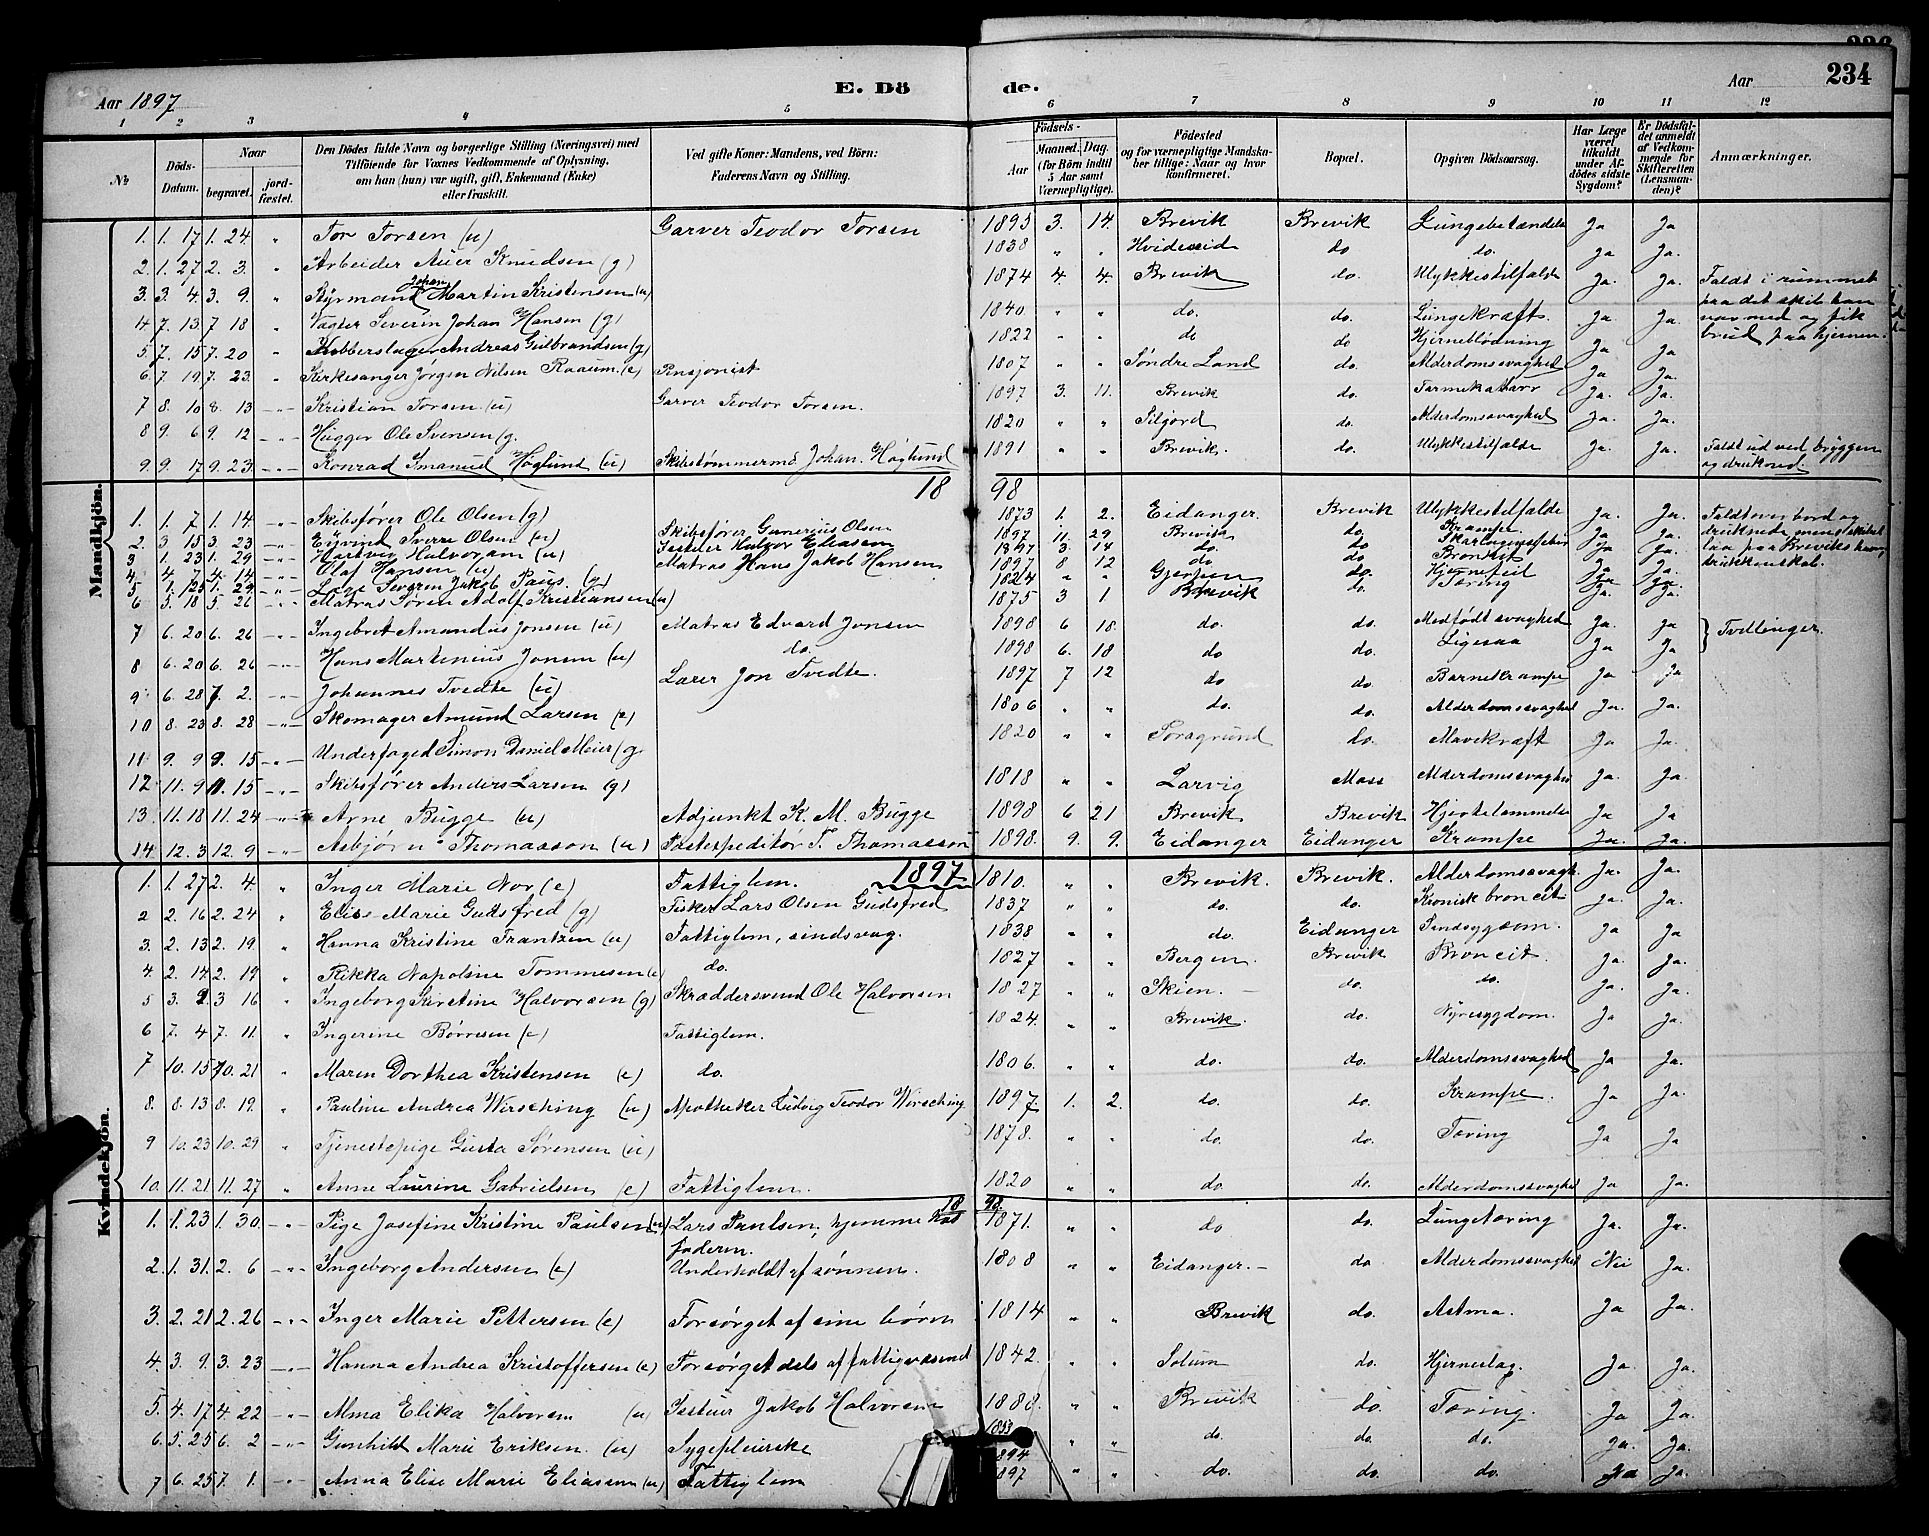 Aar 1897
E. Dö de.
Aar
234
1 2 3 4 5 6 7 8 9 10 11 12
№
Döds-Datum.
Naar
begravet.
jord-fæstet.
Den Dödes fulde Navn og borgerlige Stilling (Næringsvei) med
Tilföiende for Voxnes Vedkommende af Oplysning,
om han (hun) var ugift, gift, Enkemand (Enke)
eller fraskilt.
Ved gifte Koner: Mandens, ved Börn:
Faderens Navn og Stilling.
Födsels-
Aar
Maaned. Dag.
(for Börn indtil 5 Aar samt Værnepligtige).
Födested
og for værnepligtige Mandska-
ber tillige: Naar og hvor
konfirmeret.
Bopæl.
Opgiven Dödsaarsag.
Har Læge været tilkaldt under Afdödes sidste Sygdom?
Er Dödsfaldet anmeldt af Vedkommende for Skifteretten (Lensmanden)?
Anmærkninger.
Mandkjön.
1. 1. 17 1. 24 " Tor Torsen (u) Garver Teodor Torsen 1895 3. 14. Brevik Brevik Lungebetændelse Ja Ja
2. 1. 27 2. 3. " Arbeider Auer Knudsen (g) 1838 " " Hvideseid do do. Ja Ja
3. 3. 4. 3. 9. " Styrmand Johan Martin Kristensen (u) 1874 4. 4. Brevik do. Ulykkestilfælde Ja. Ja. Faldt i rummet paa det skib han var med og fik brud paa hjernen.
4 7. 13 7 18 " Vægter Severin Johan Hansen (g) 1840 " " do. do. Lungekræft Ja Ja.
5 7. 15 7. 20 " Kobberslager Andreas Gulbrandsen (g) 1822 " " do do Hjerneblødning Ja Ja
6. 7. 19 7. 23. " Kirkesanger Jørgen Nilsen Raaum (e) Pensjonist 1807 " " Søndre Land do. Alderdomssvaghed Ja Ja.
7 8. 10 8. 13 Kristian Torsen (u) Garver Teodor Torsen. 1897 3. 11. Brevik do. Tarmekatarr Ja. Ja.
8 9. 6 9. 12 Hugger Ole Svensen (g. 1820 " " Siljord do. Alderdomssvaghed Ja. Ja.
9. 9. 17 9. 23 Konrad Imanuel Høglund (u) Skibstømmermd Johan. Høglund 1891 " " Brevik. do. Ulykkestilfælde Ja. Ja. Faldt ud ved bryggen og druknede.
1898
1. 1. 7 1. 14. Skibsfører Ole Olsen (g) 1873 1. 2. Eidanger. Brevik Ulykkestilfælde Ja. Ja. Faldt over bord og druknede, mens skibet laa paa Breviks havn drukkenskab.
2. 3 15 3. 23 Eivind Sverre Olsen (u) Skibsfører Gunerius Olsen 1897 11. 29 Brevik do. Krampe Ja Ja.
3 1. 23 1. 29 Hartvig Halvorsen (u) Halvor Eliassen 1897 3. 14 do. do Ja Ja
4. 4 7 4. 14 Olaf Hansen (u) Matros Hans Jakob Hansen 1897 8 12 do do Bronkit Ja Ja.
5 1. 23 1. 29 Severin Jakob Paus (g) 1824 " " Gjerpen do. Hjernefeil Ja Ja.
6 5. 18 5. 26 Matros Søren Adolf Kristiansen (u) 1875 3 1 Brevik do. Tæring Ja. Ja.
7 6. 20 6. 26 Ingebret Amandus Jonsen (u) Matros Edvard Jonsen 1898 6 18. do. do. Medfødt svaghed Ja. Ja Tvillinger.
8 6. 20 6. 26 Hans Martinius Jonsen (u) do. 1898 6. 18 do do. Ligesaa Ja Ja
9 6. 28 7. 2. Johannes Tvedte (u) Lærer Jon Tvedte. 1897 7 12 do do. Barnekrampe Ja Ja
10 8. 23 8. 28 Skomager Amund Larsen (e) 1806 " " do. do. Alderdomssvaghed Ja. Ja.
11 9. 9 9. 15 Underfoged Simon Daniel Meier (g 1820 " " Porsgrund do. Mavekræft Ja Ja.
12 11. 9 11. 15 Skibsfører Anders Larsen (g) 1818 " " Larvig Moss Alderdomssvaghed Ja. Ja.
13. 11. 18 11. 24 Arne Bugge (u) Adjunkt K. M. Bugge 1898 6 21 Brevik Brevik Hjertelammelse Ja Ja
14 12. 3 12. 9 Asbjørn Thomasson (u) Postexpeditør T. Thomasson 1898. 9. 9. Eidanger Eidanger Krampe Ja. Ja.
Kvindekjön.
1897
1. 1. 27 2. 4 " Inger Marie Nor (e) Fattiglem. 1810. " " Brevik. Brevik. Alderdomssvagh. Ja. Ja.
2 2. 16 2. 24 " Elise Marie Gudsfred (g) Fisker Lars Olsen Gudsfred 1837 " " do. do. Kronisk broncit Ja Ja.
3. 2. 13 2. 19. " Hanna Kristine Frantzen (u) Fattiglem, sindsvag. 1838 " " do. Eidanger Sindsygdom. Ja Ja
4. 2. 14 2. 19 " Rikka Napoline Tommesen (e) do. 1827 " " Bergen. Brevik Broncit. Ja. Ja.
5 3. 9 3 16 " Ingeborg Kirstine Halvorsen (g) Skræddersvend Ole Halvorsen 1827 " " Skien. do. do. Ja. Ja.
6 7. 4 7. 11. " Ingerine Børresen (e) Fattiglem. 1824. " " Brevik. do. Nyresygdom. Ja Ja.
7 10. 15 10. 21 " Maren Dorthea Kristensen (e) do. 1806. " " do. do. Alderdomssvaghed Ja Ja.
8. 8. 13 8. 19. " Pauline Andrea Wirsching (u) Apotheker Ludvig Teodor Wirsching 1897. 1. 2. do. do. Krampe. Ja Ja.
9 10. 23 10. 29 " Tjenestepige Gusta Sørensen (u) 1878. " " do. do. Tæring Ja Ja
10. 11. 21 11. 27 " Anne Laurine Gabrielsen (e) Fattiglem. 1820 " " do. do. Alderdomssvaghed Ja Ja
1898.
1. 1. 23 1. 30. Pige Josefine Kristine Paulsen (u) Lars Paulsen, hjemme hos faderen. 1871. " " do do. Lungetæring Ja. Ja.
2. 1. 31. 2. 6 Ingeborg Andersen (e) Underholdt af sønnen. 1808 " " Eidanger.- do Alderdomssvaghed Nei Ja.
3. 2. 21 2. 26 Inger Marie Pettersen (e) Forsørget af sine børn 1814 " " Brevik do. Astma. Ja Ja.
4. 3. 9. 3. 23 Hanna Andrea Kristoffersen (e) Forsørget dels af fattigvæsenet 1842. " " Solum do. Hjerneslag. Ja. Ja.
5. 4. 17 4. 22 Alma Elika Halvorsen (u) Jakob Halvorsen 1888. " " Brevik do. Tæring. Ja Ja.
6. 5. 25 6. 2 Gunhild Marie Eriksen. (u) Sygepleierske 1853 " " do. do. do. Ja. Ja.
7 6. 25 7. 1. Anna Elise Marie Eliassen (u) Fattiglem 1894 1897 " " do. do. do. Ja Ja.